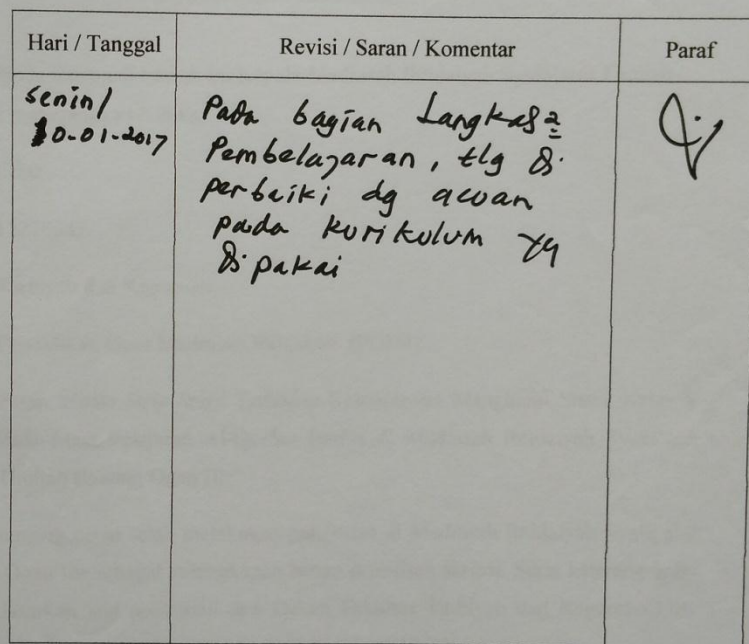 Hari / Tanggal
Revisi / Saran / Komentar
Paraf
Senin/
10-01-2017
Pada bagian Langkah2
Pembelajaran, tlg di
perbaiki dg acuan
pada kurikulum yg
di pakai